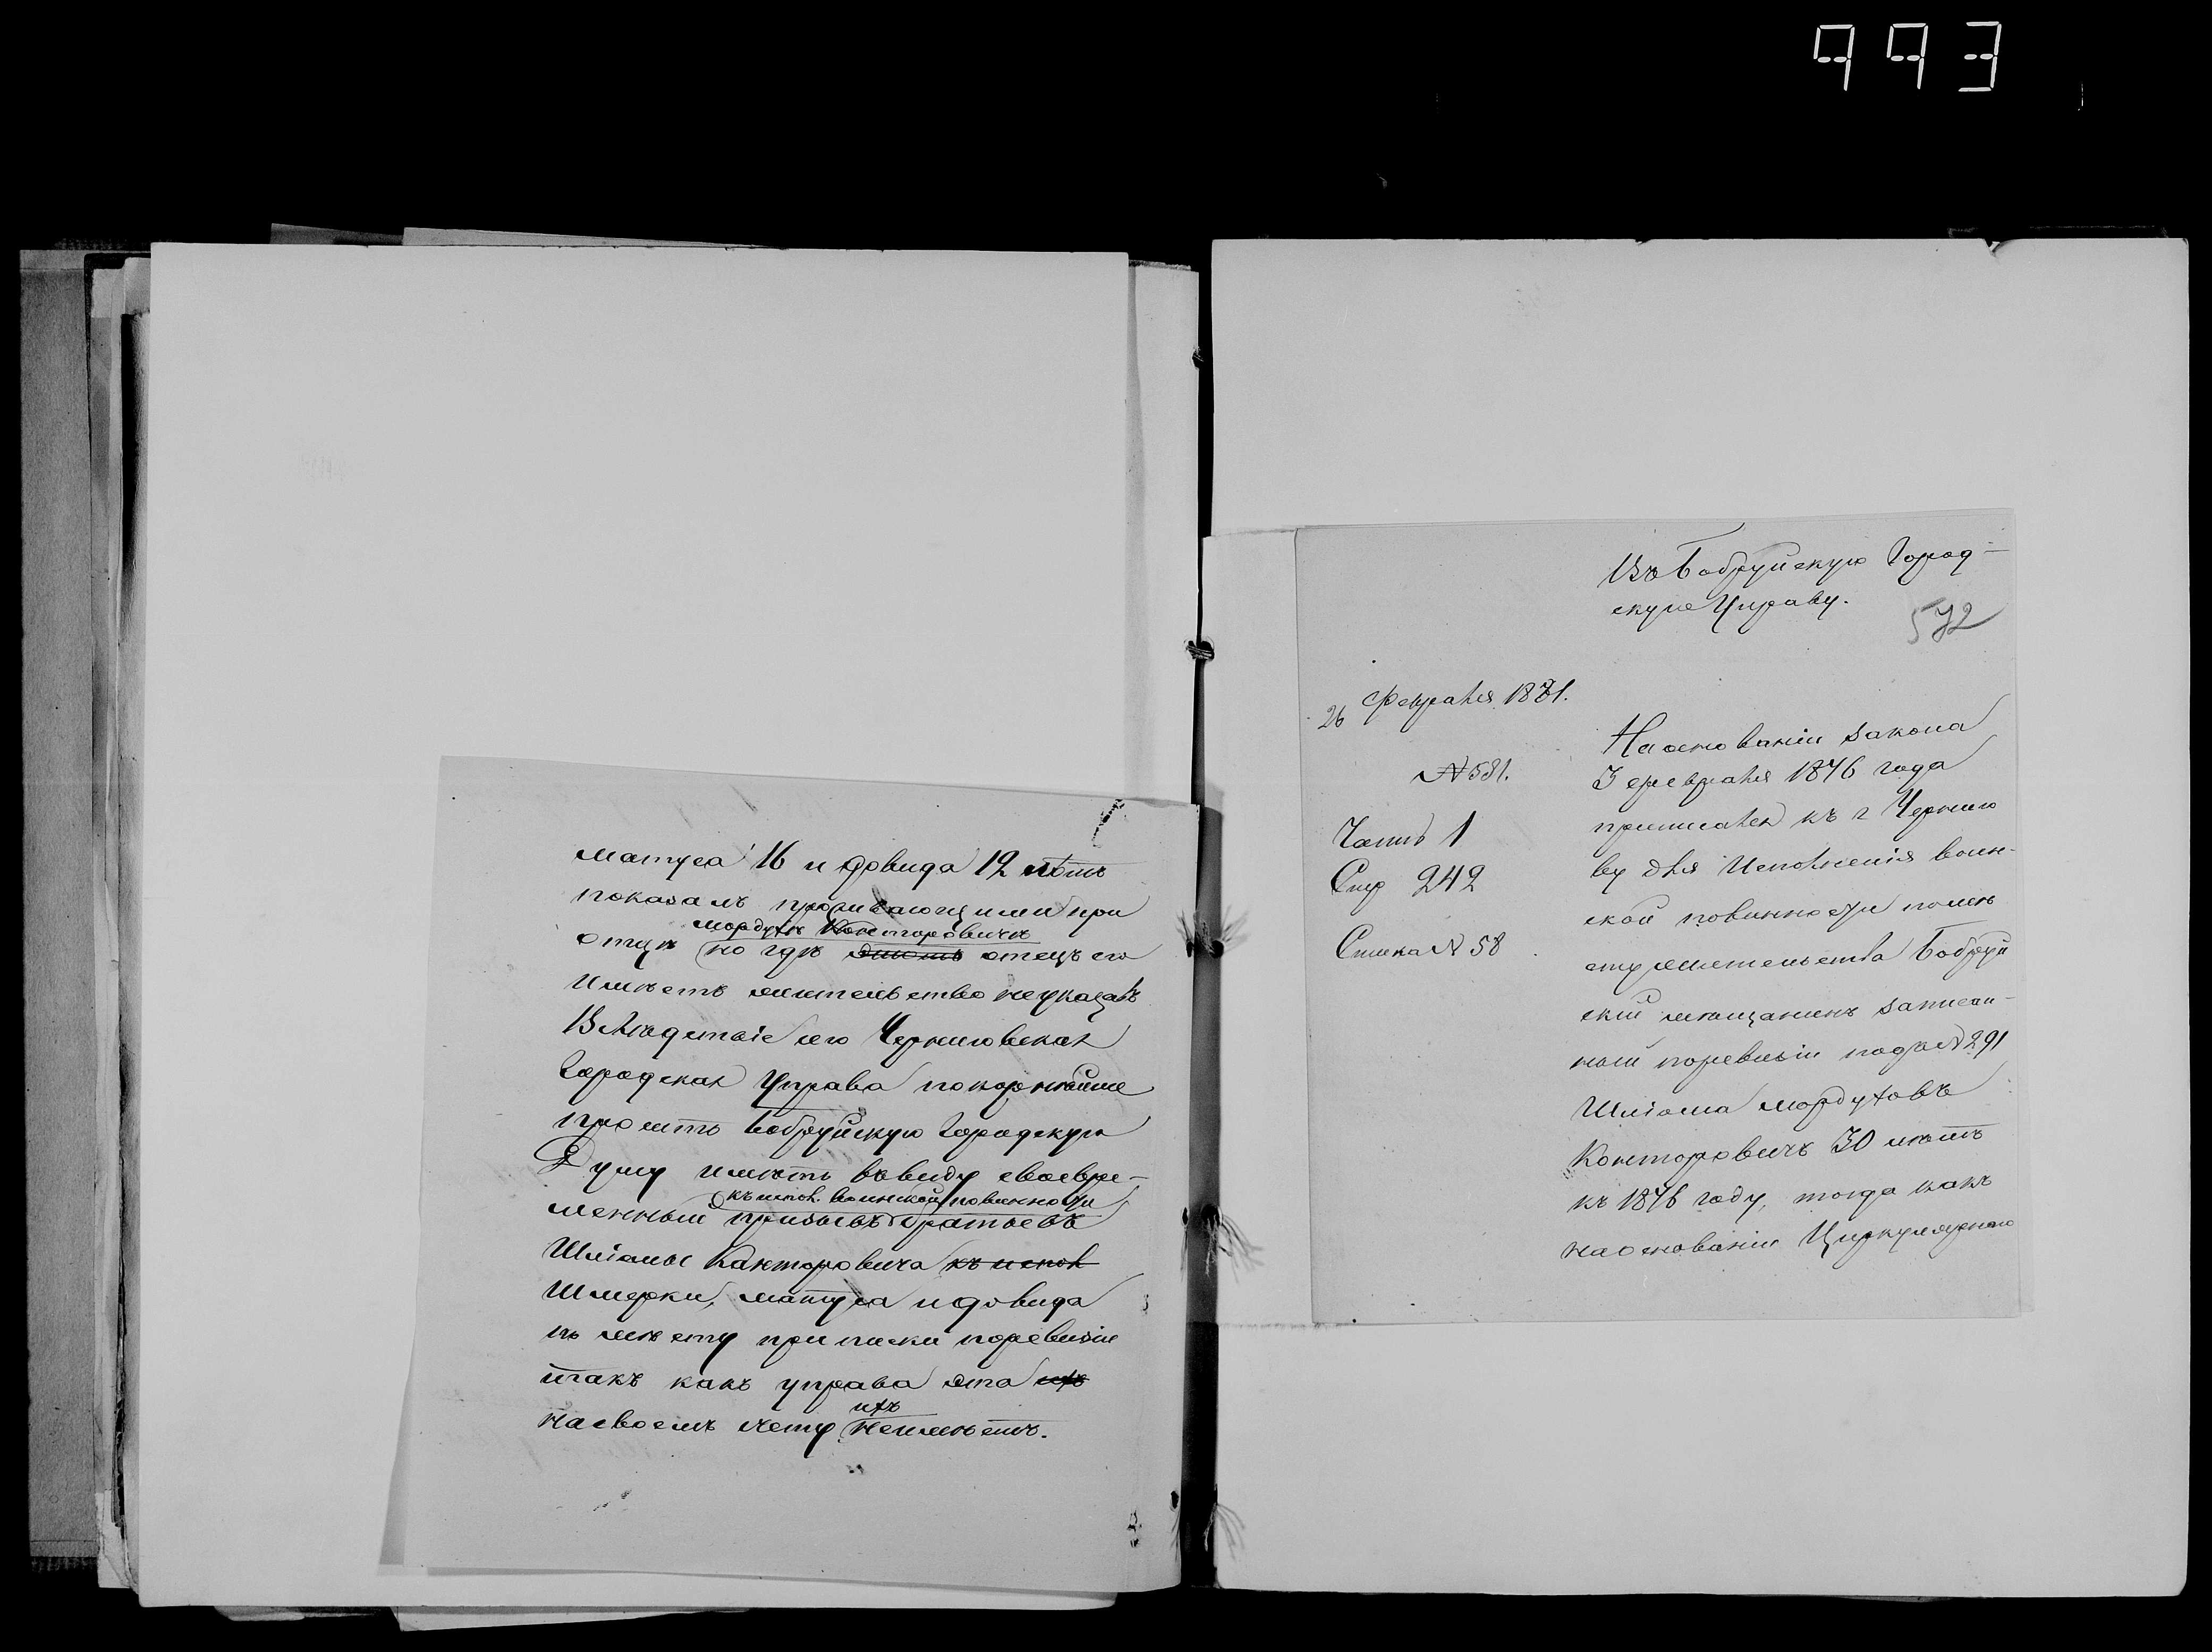 993
матуса 16 и довида 12 лѣтъ
показалъ проживающими при
мордухѣ Конторовичѣ
отцѣ но гдѣ отецъ его
имѣетъ жительство неуказалъ
Вслѣдствіе сего Черниговская
Городская Управа покорнѣйше
проситъ Бобруйскую Городскую
Думу имѣть ввиду своевре-
къ испол. воинской повинности
менный призывъ братьевъ
Шліомы Канторовича къ испол
Шмерки, матуса и довида
по мѣсту приписки поревизіи
такъ какъ управа эта ихъ
ихъ
насвоемъ счету неимѣетъ.
Въ Бобруйскую Город-
скую Управу.
572
26 Февраля 1881.
№ 581.
Часть 1
Стр 242
Списка № 58
На основаніи закона
3 февраля 1876 года
приписался къ г Черниго
ву для Исполненія воин-
ской повинности помѣ
сту жительства Бобруй
скій мѣщанинъ записан-
ный поревизіи подъ № 291
Шліома мордуховъ
Конторовичъ 30 лѣтъ
къ 1876 году, тогда какъ
наоснованіи Циркулярнаго